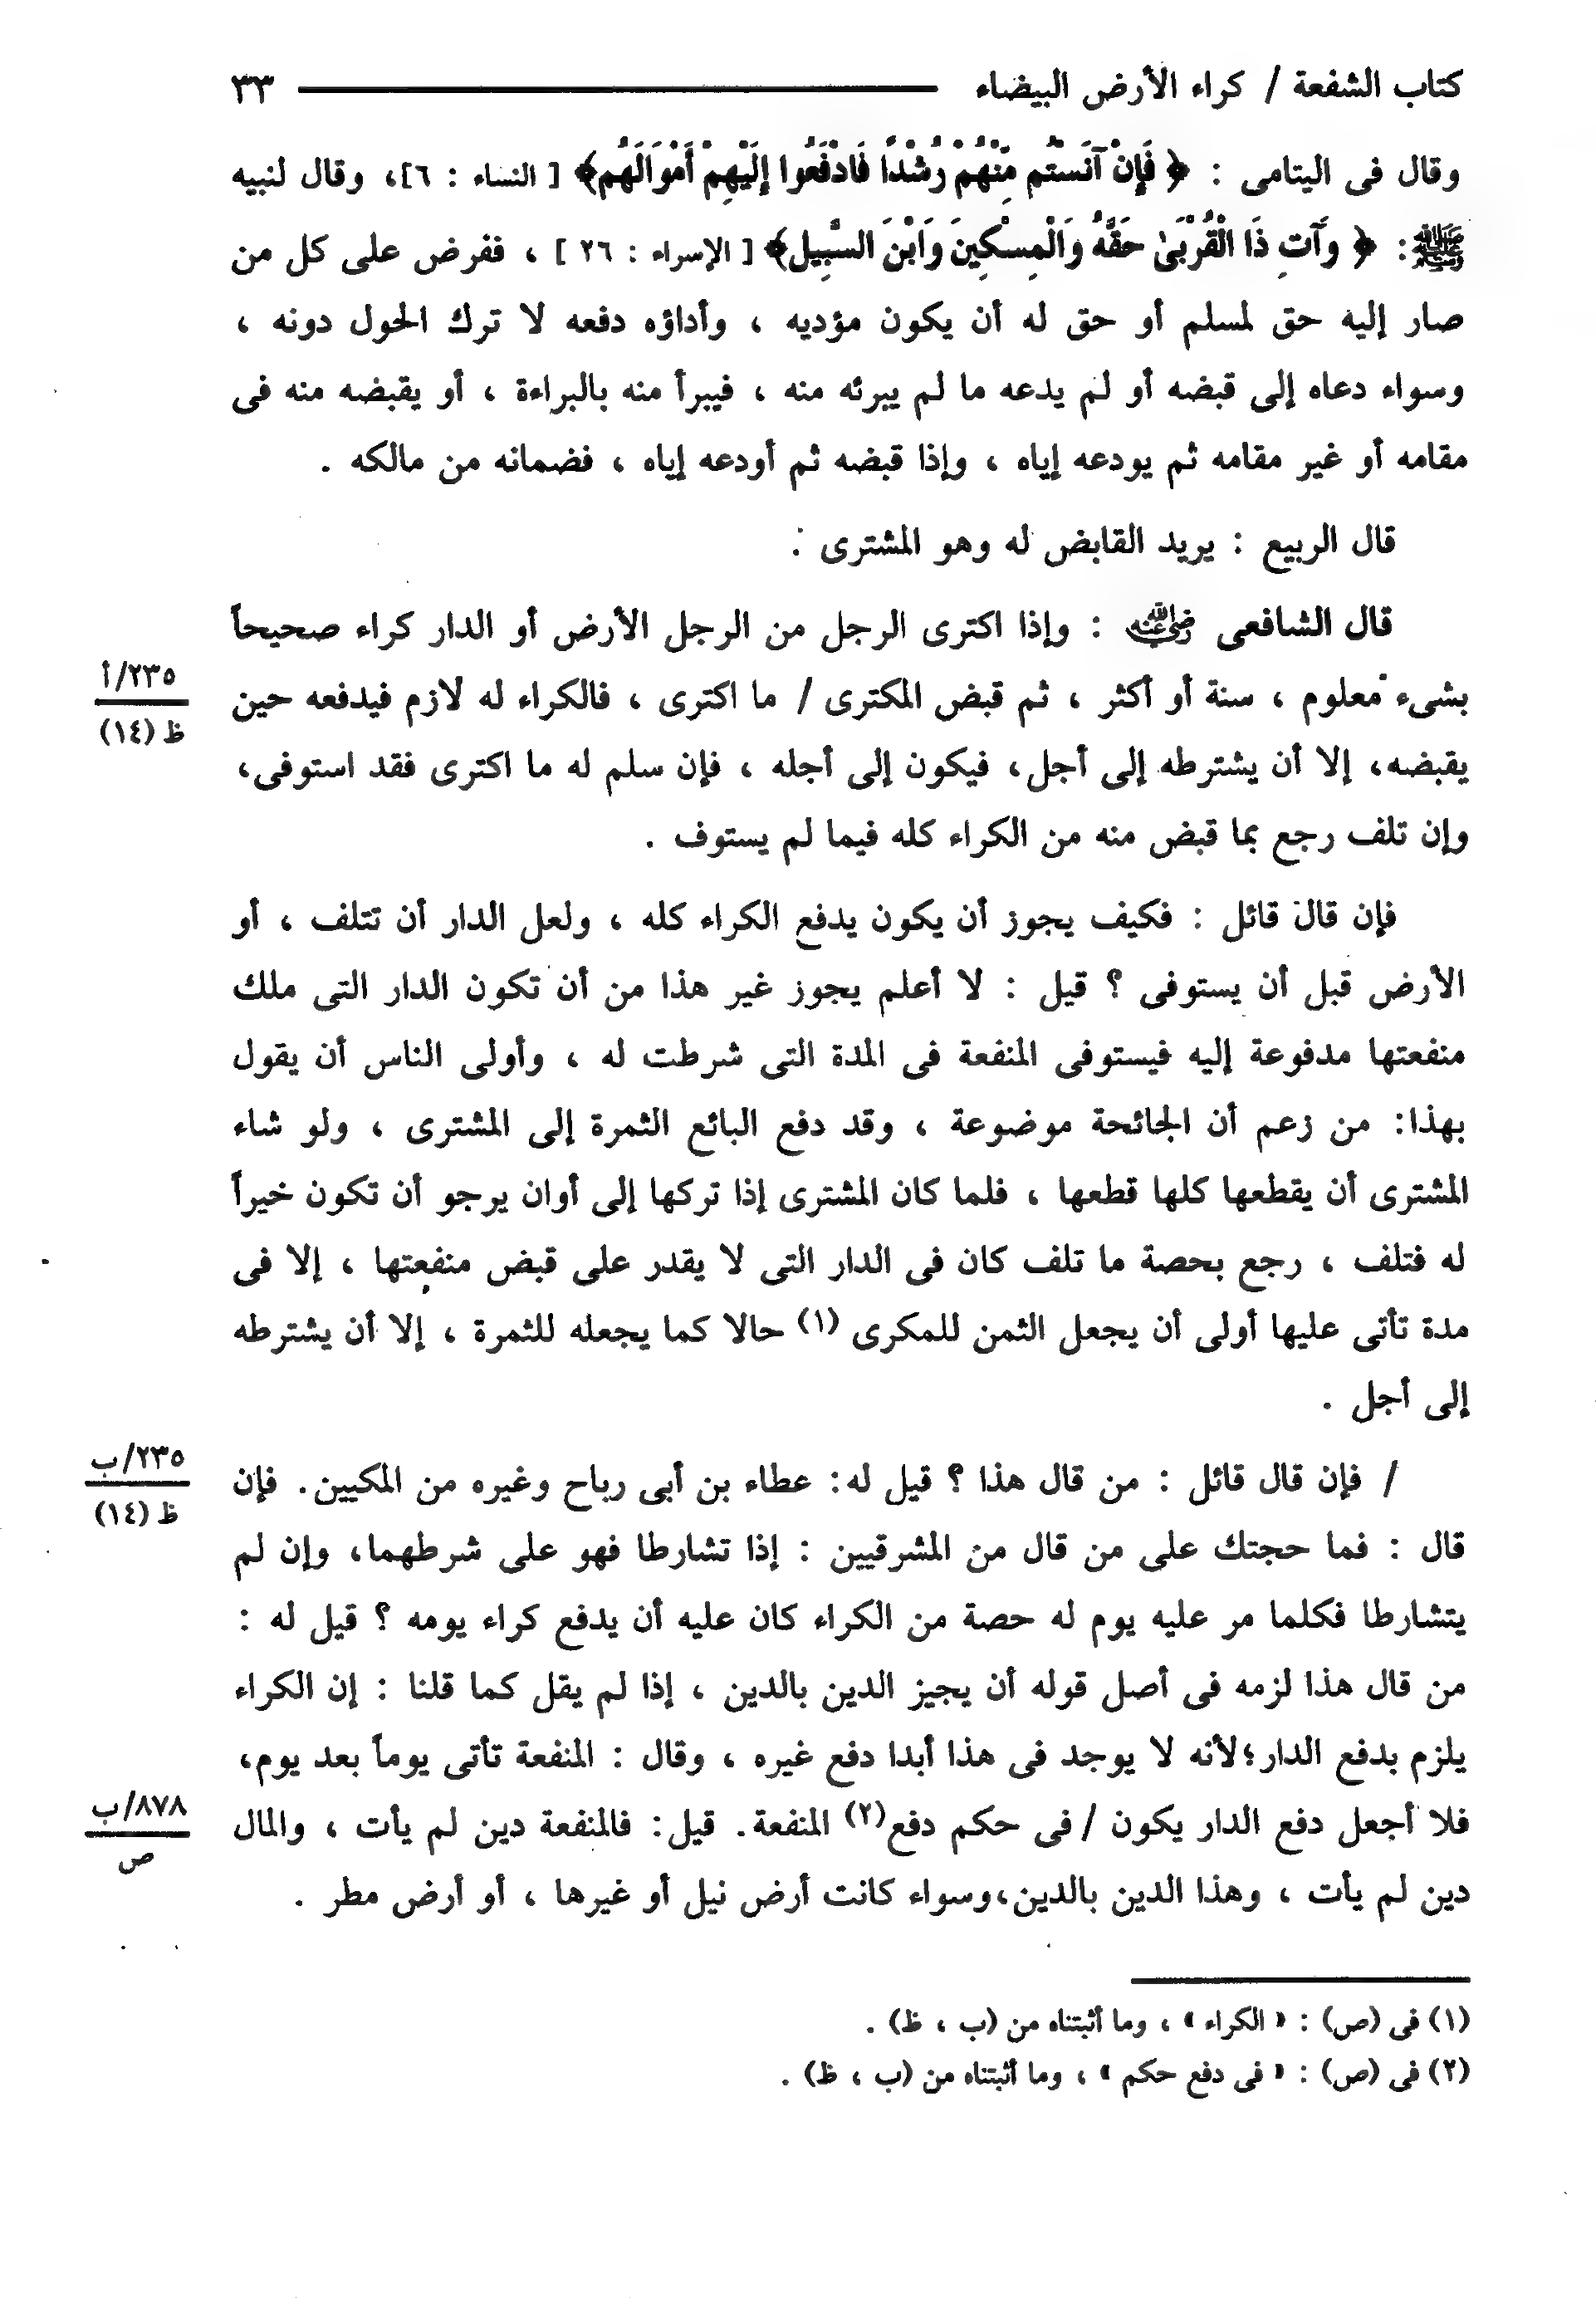 كتاب الشفعة / كراء الأرض البيضاء ٣٣
وقال فى اليتامى : ﴿ فَإِنْ آنَسْتُم مِّنْهُمْ رُشْدًا فَادْفَعُوا إِلَيْهِمْ أَمْوَالَهُم﴾ [ النساء : ٦]، وقال لنبيه
ﷺ: ﴿ وَآتِ ذَا الْقُرْبَىٰ حَقَّهُ وَالْمِسْكِينَ وَابْنَ السَّبِيل﴾ [ الإسراء : ٢٦ ] ، ففرض على كل من
صار إليه حق لمسلم أو حق له أن يكون مؤديه ، وأداؤه دفعه لا ترك الحول دونه ،
وسواء دعاه إلى قبضه أو لم يدعه ما لم يبرئه منه ، فيبرأ منه بالبراءة ، أو يقبضه منه فى
مقامه أو غير مقامه ثم يودعه إياه ، وإذا قبضه ثم أودعه إياه ، فضمانه من مالكه .
قال الربيع : يريد القابض له وهو المشترى .
قال الشافعى رضي الله عنه : وإذا اكترى الرجل من الرجل الأرض أو الدار كراء صحيحاً
بشىء معلوم ، سنة أو أكثر ، ثم قبض المكترى / ما اكترى ، فالكراء له لازم فيدفعه حين
٢٣٥/أ
ظ (١٤)
يقبضه، إلا أن يشترطه إلى أجل، فيكون إلى أجله ، فإن سلم له ما اكترى فقد استوفى،
وإن تلف رجع بما قبض منه من الكراء كله فيما لم يستوف .
فإن قال قائل : فكيف يجوز أن يكون يدفع الكراء كله ، ولعل الدار أن تتلف ، أو
الأرض قبل أن يستوفى ؟ قيل : لا أعلم يجوز غير هذا من أن تكون الدار التى ملك
منفعتها مدفوعة إليه فيستوفى المنفعة فى المدة التى شرطت له ، وأولى الناس أن يقول
بهذا: من زعم أن الجائحة موضوعة ، وقد دفع البائع الثمرة إلى المشترى ، ولو شاء
المشترى أن يقطعها كلها قطعها ، فلما كان المشترى إذا تركها إلى أوان يرجو أن تكون خيراً
له فتلف ، رجع بحصة ما تلف كان فى الدار التى لا يقدر على قبض منفعتها ، إلا فى
مدة تأتى عليها أولى أن يجعل الثمن للمكرى (١) حالا كما يجعله للثمرة ، إلا أن يشترطه
إلى أجل .
/ فإن قال قائل : من قال هذا ؟ قيل له: عطاء بن أبى رباح وغيره من المكيين. فإن
٢٣٥/ب
ظ (١٤)
قال : فما حجتك على من قال من المشرقيين : إذا تشارطا فهو على شرطهما، وإن لم
يتشارطا فكلما مر عليه يوم له حصة من الكراء كان عليه أن يدفع كراء يومه ؟ قيل له :
من قال هذا لزمه فى أصل قوله أن يجيز الدين بالدين ، إذا لم يقل كما قلنا : إن الكراء
يلزم بدفع الدار؛لأنه لا يوجد فى هذا أبدا دفع غيره ، وقال : المنفعة تأتى يوماً بعد يوم،
فلا أجعل دفع الدار يكون / فى حكم دفع(٢) المنفعة. قيل: فالمنفعة دين لم يأت ، والمال
٨٧٨/ب
ص
دين لم يأت ، وهذا الدين بالدين،وسواء كانت أرض نيل أو غيرها ، أو أرض مطر .
(١) فى (ص) : « الكراء » ، وما أثبتناه من (ب ، ظ) .
(٢) فى (ص) : « فى دفع حكم » ، وما أثبتناه من (ب ، ظ) .